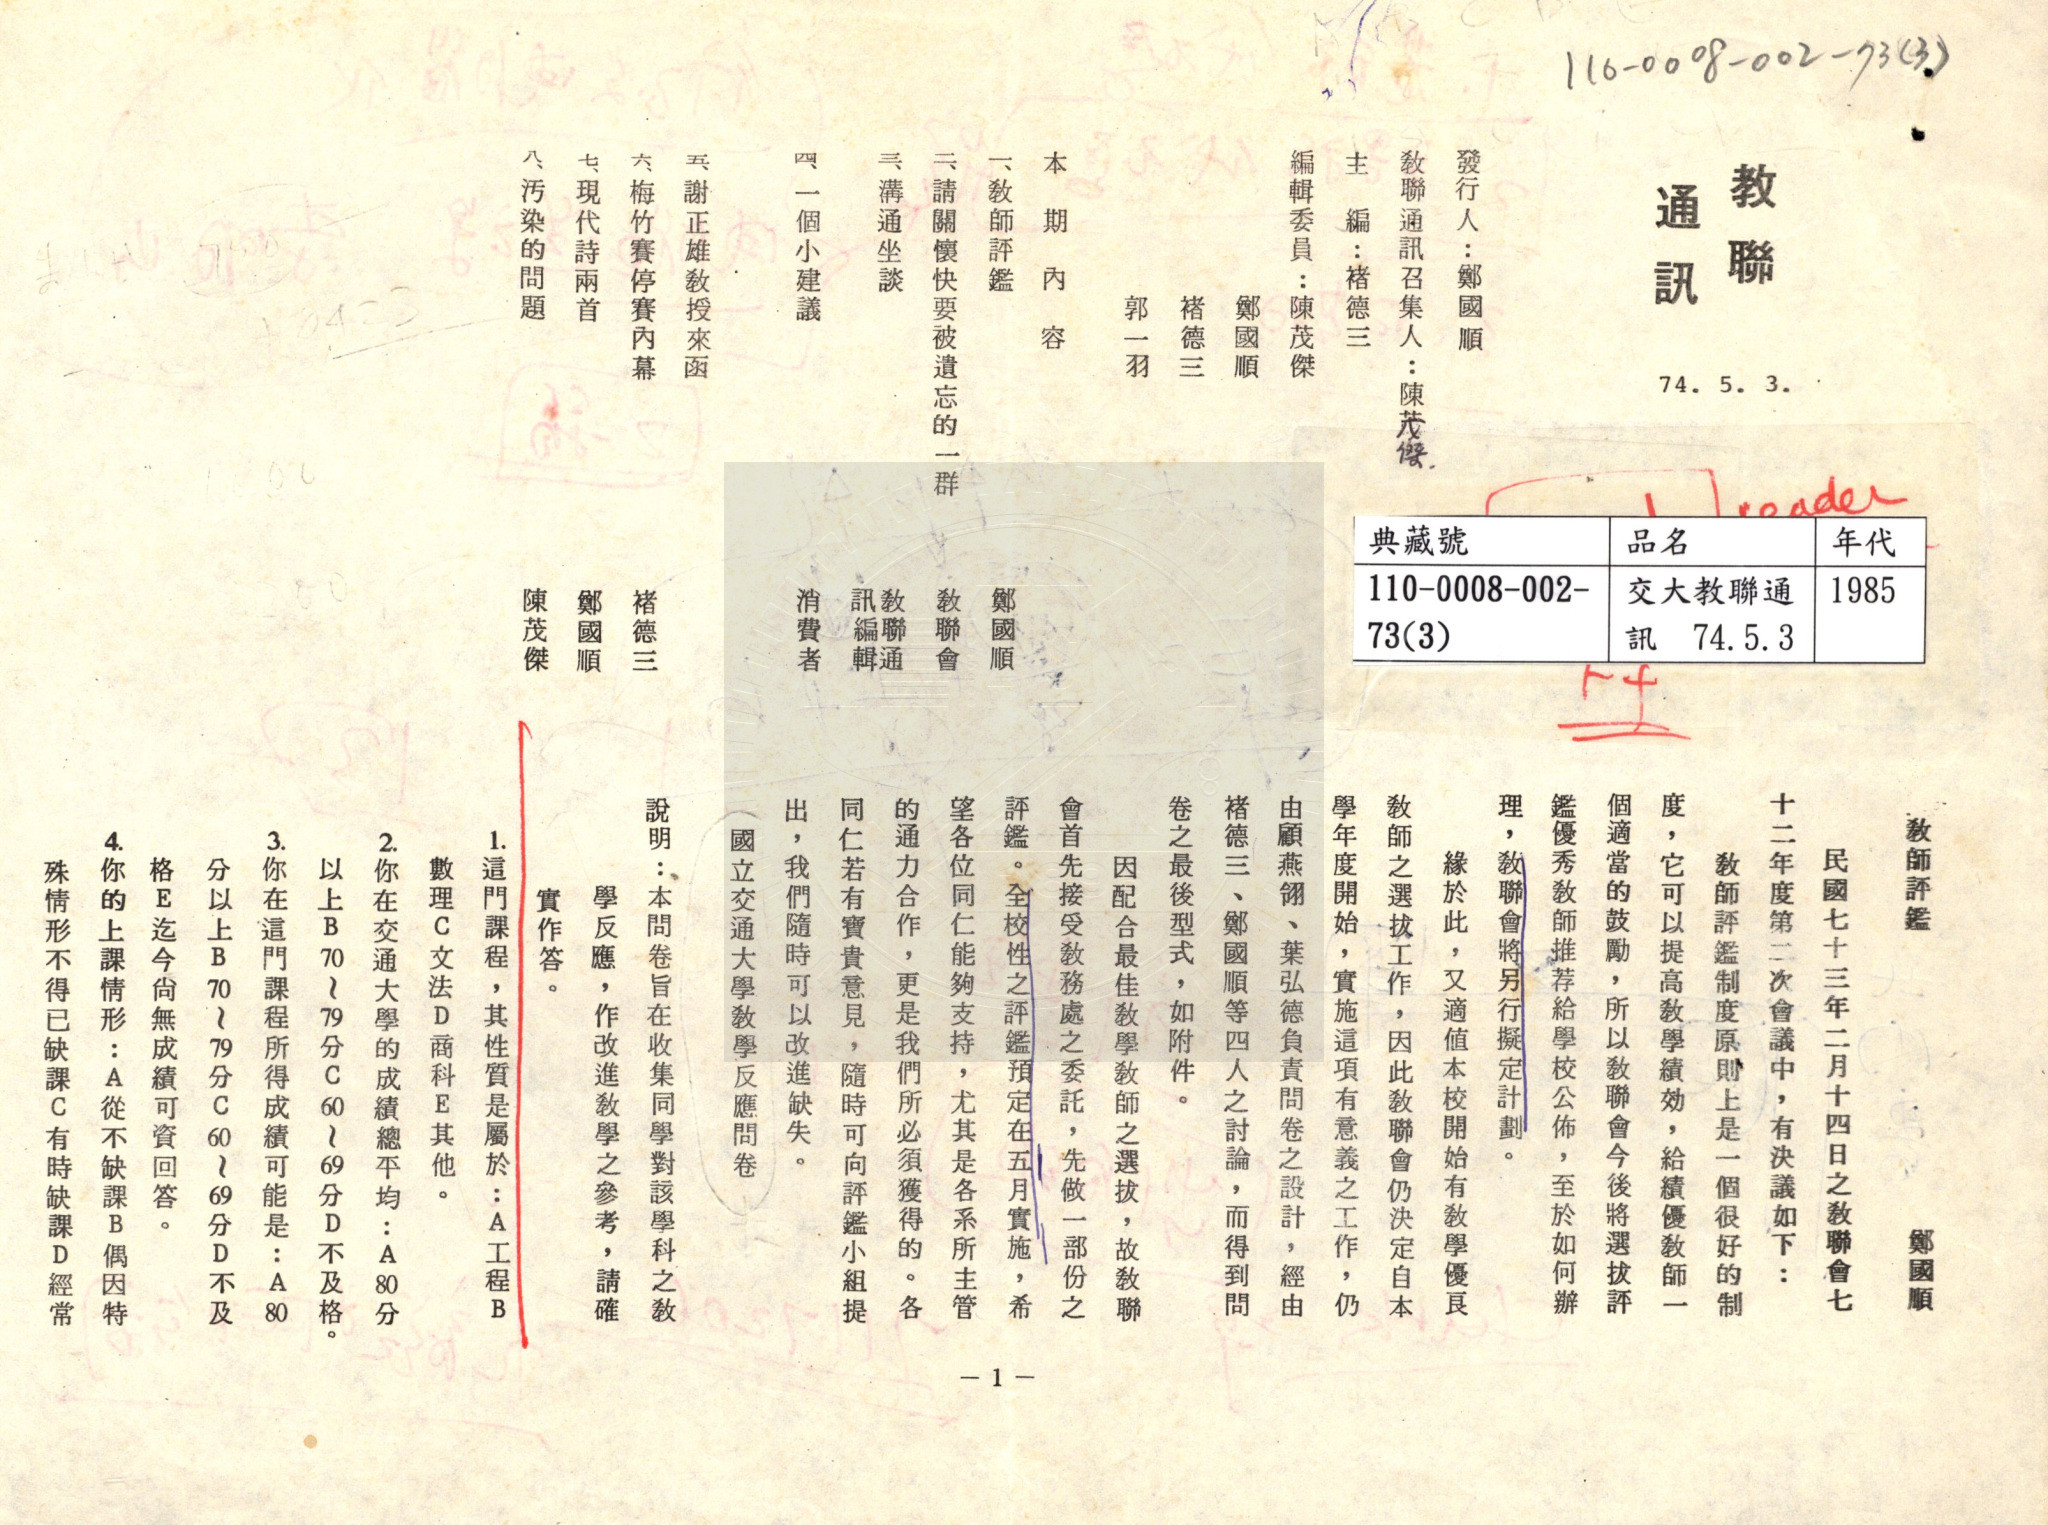 110-0008-002-73(3)
教聯
通訊
74. 5. 3.
發行人：鄭國順
教聯通訊召集人：陳茂傑
主　編：褚德三
編輯委員：陳茂傑
鄭國順
褚德三
郭一羽
本期內容
一、教師評鑑　鄭國順
二、請關懷快要被遺忘的一群　教聯會
三、溝通坐談　教聯通
訊編輯
四、一個小建議　消費者
五、謝正雄教授來函
六、梅竹賽停賽內幕　褚德三
七、現代詩兩首　鄭國順
八、汚染的問題　陳茂傑
reader
典藏號　品名　年代
110-0008-002-　交大教聯通　1985
73(3)　訊　74.5.3
教師評鑑　鄭國順
民國七十三年二月十四日之教聯會七
十二年度第二次會議中，有決議如下：
教師評鑑制度原則上是一個很好的制
度，它可以提高教學績効，給績優教師一
個適當的鼓勵，所以教聯會今後將選拔評
鑑優秀教師推荐給學校公佈，至於如何辦
理，教聯會將另行擬定計劃。
緣於此，又適值本校開始有教學優良
教師之選拔工作，因此教聯會仍決定自本
學年度開始，實施這項有意義之工作，仍
由顧燕翎、葉弘德負責問卷之設計，經由
褚德三、鄭國順等四人之討論，而得到問
卷之最後型式，如附件。
因配合最佳教學教師之選拔，故教聯
會首先接受教務處之委託，先做一部份之
評鑑。全校性之評鑑預定在五月實施，希
望各位同仁能夠支持，尤其是各系所主管
的通力合作，更是我們所必須獲得的。各
同仁若有寶貴意見，隨時可向評鑑小組提
出，我們隨時可以改進缺失。
國立交通大學教學反應問卷
說明：本問卷旨在收集同學對該學科之教
學反應，作改進教學之參考，請確
實作答。
1.這門課程，其性質是屬於：A工程B
數理C文法D商科E其他。
2.你在交通大學的成績總平均：A80分
以上B70～79分C60～69分D不及格。
3.你在這門課程所得成績可能是：A80
分以上B70～79分C60～69分D不及
格E迄今尚無成績可資回答。
4.你的上課情形：A從不缺課B偶因特
殊情形不得已缺課C有時缺課D經常
－1－